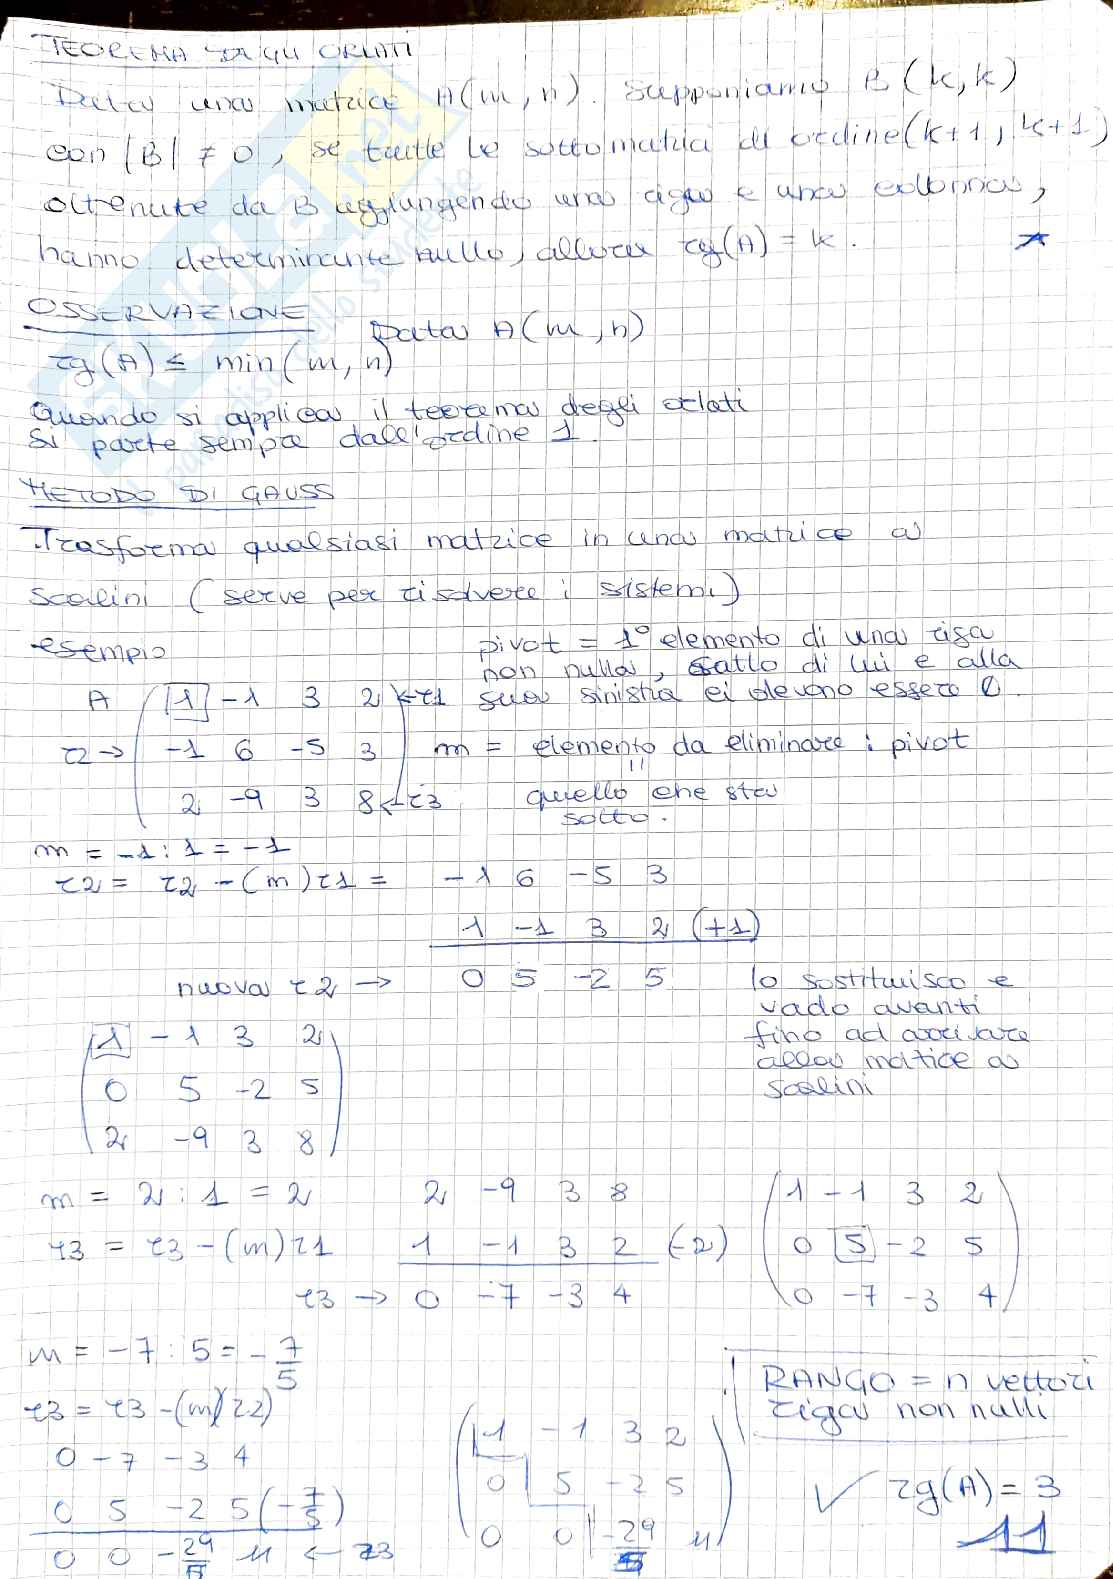 TEOREMA DEGLI ORLATI
Data una matrice A(m,n). supponiamo B(k,k)
con |B| ≠ 0, se tutte le sottomatrici di ordine(k+1, k+1)
ottenute da B aggiungendo una riga e una colonna,
hanno determinante nullo, allora rg(A) = k.
OSSERVAZIONE
Data A(m,n)
rg(A) ≤ min(m,n)
Quando si applica il teorema degli orlati
si parte sempre dall'ordine 1.
METODO DI GAUSS
Trasforma qualsiasi matrice in una matrice a
scalini (serve per risolvere i sistemi)
esempio
pivot = 1° elemento di una riga
non nulla, sotto di lui e alla
sua sinistra ci devono essere 0.
A
1 -1 3 2 ←r1
r2→ -1 6 -5 3
2 -9 3 8←r3
m = elemento da eliminare : pivot
"
quello che sta
sotto.
m = -1 : 1 = -1
r2 = r2 -(m)r1 = -1 6 -5 3
1 -1 3 2 (+1)
nuova r2 → 0 5 -2 5
lo sostituisco e
vado avanti
fino ad arrivare
alla matice a
scalini
1 -1 3 2
0 5 -2 5
2 -9 3 8
m = 2 : 1 = 2
2 -9 3 8
r3 = r3 -(m)r1
1 -1 3 2 (-2)
r3 → 0 -7 -3 4
1 -1 3 2
0 5 -2 5
0 -7 -3 4
m = -7 : 5 = -7/5
r3 = r3 -(m)(r2)
0 -7 -3 4
0 5 -2 5(-7/5)
0 0 -29/5 11 ← r3
1 -1 3 2
0 5 -2 5
0 0 -29/5 11
RANGO = n vettori
riga non nulli
✓ rg(A) = 3
11
SKUOLA.net
il paradiso dello studente